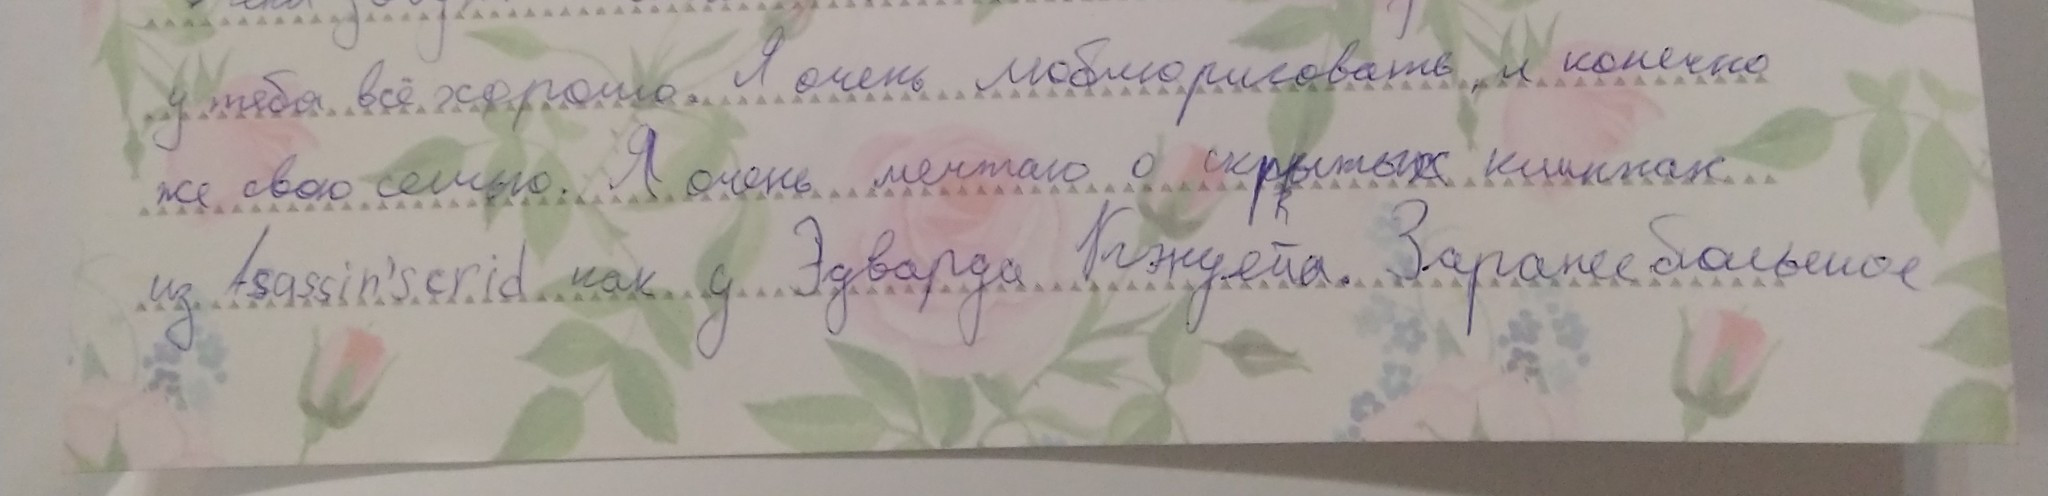 у тебя всё хорошо. Я очень люблю рисовать, и конечно
же свою семью. Я очень мечтаю о скрытых клинках
из Assassin's crid как у Эдварда Кэнуейа. Заранее большое